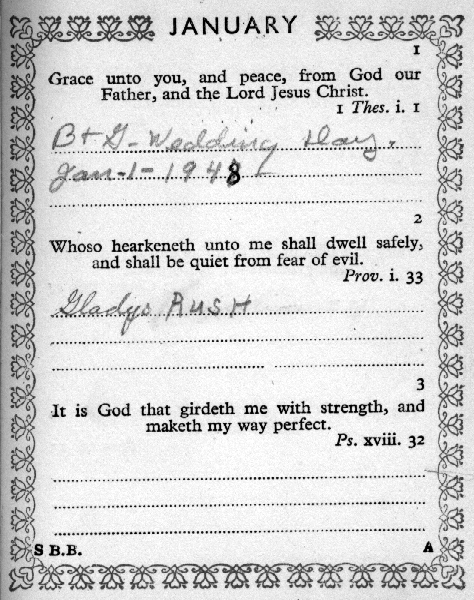 JANUARY
1
Grace unto you, and peace, from God our
Father, and the Lord Jesus Christ.
1 Thes. i. 1
B + G - Wedding Day,
Jan-1-1948
2
Whoso hearkeneth unto me shall dwell safely,
and shall be quiet from fear of evil.
Prov. i. 33
Gladys RUSH
3
It is God that girdeth me with strength, and
maketh my way perfect.
Ps. xviii. 32
S B.B.
A